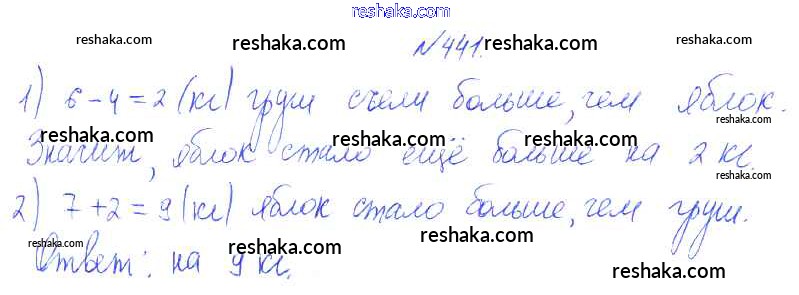 reshaka.com
reshaka.com reshaka.com reshaka.com reshaka.com
№441.
1) 6-4=2 (кг) груш съели больше, чем яблок.
reshaka.com reshaka.com reshaka.com reshaka.com
Значит, яблок стало ещё больше на 2 кг.
reshaka.com
2) 7+2=9 (кг) яблок стало больше, чем груш.
reshaka.com reshaka.com reshaka.com reshaka.com
Ответ: на 9 кг.
reshaka.com